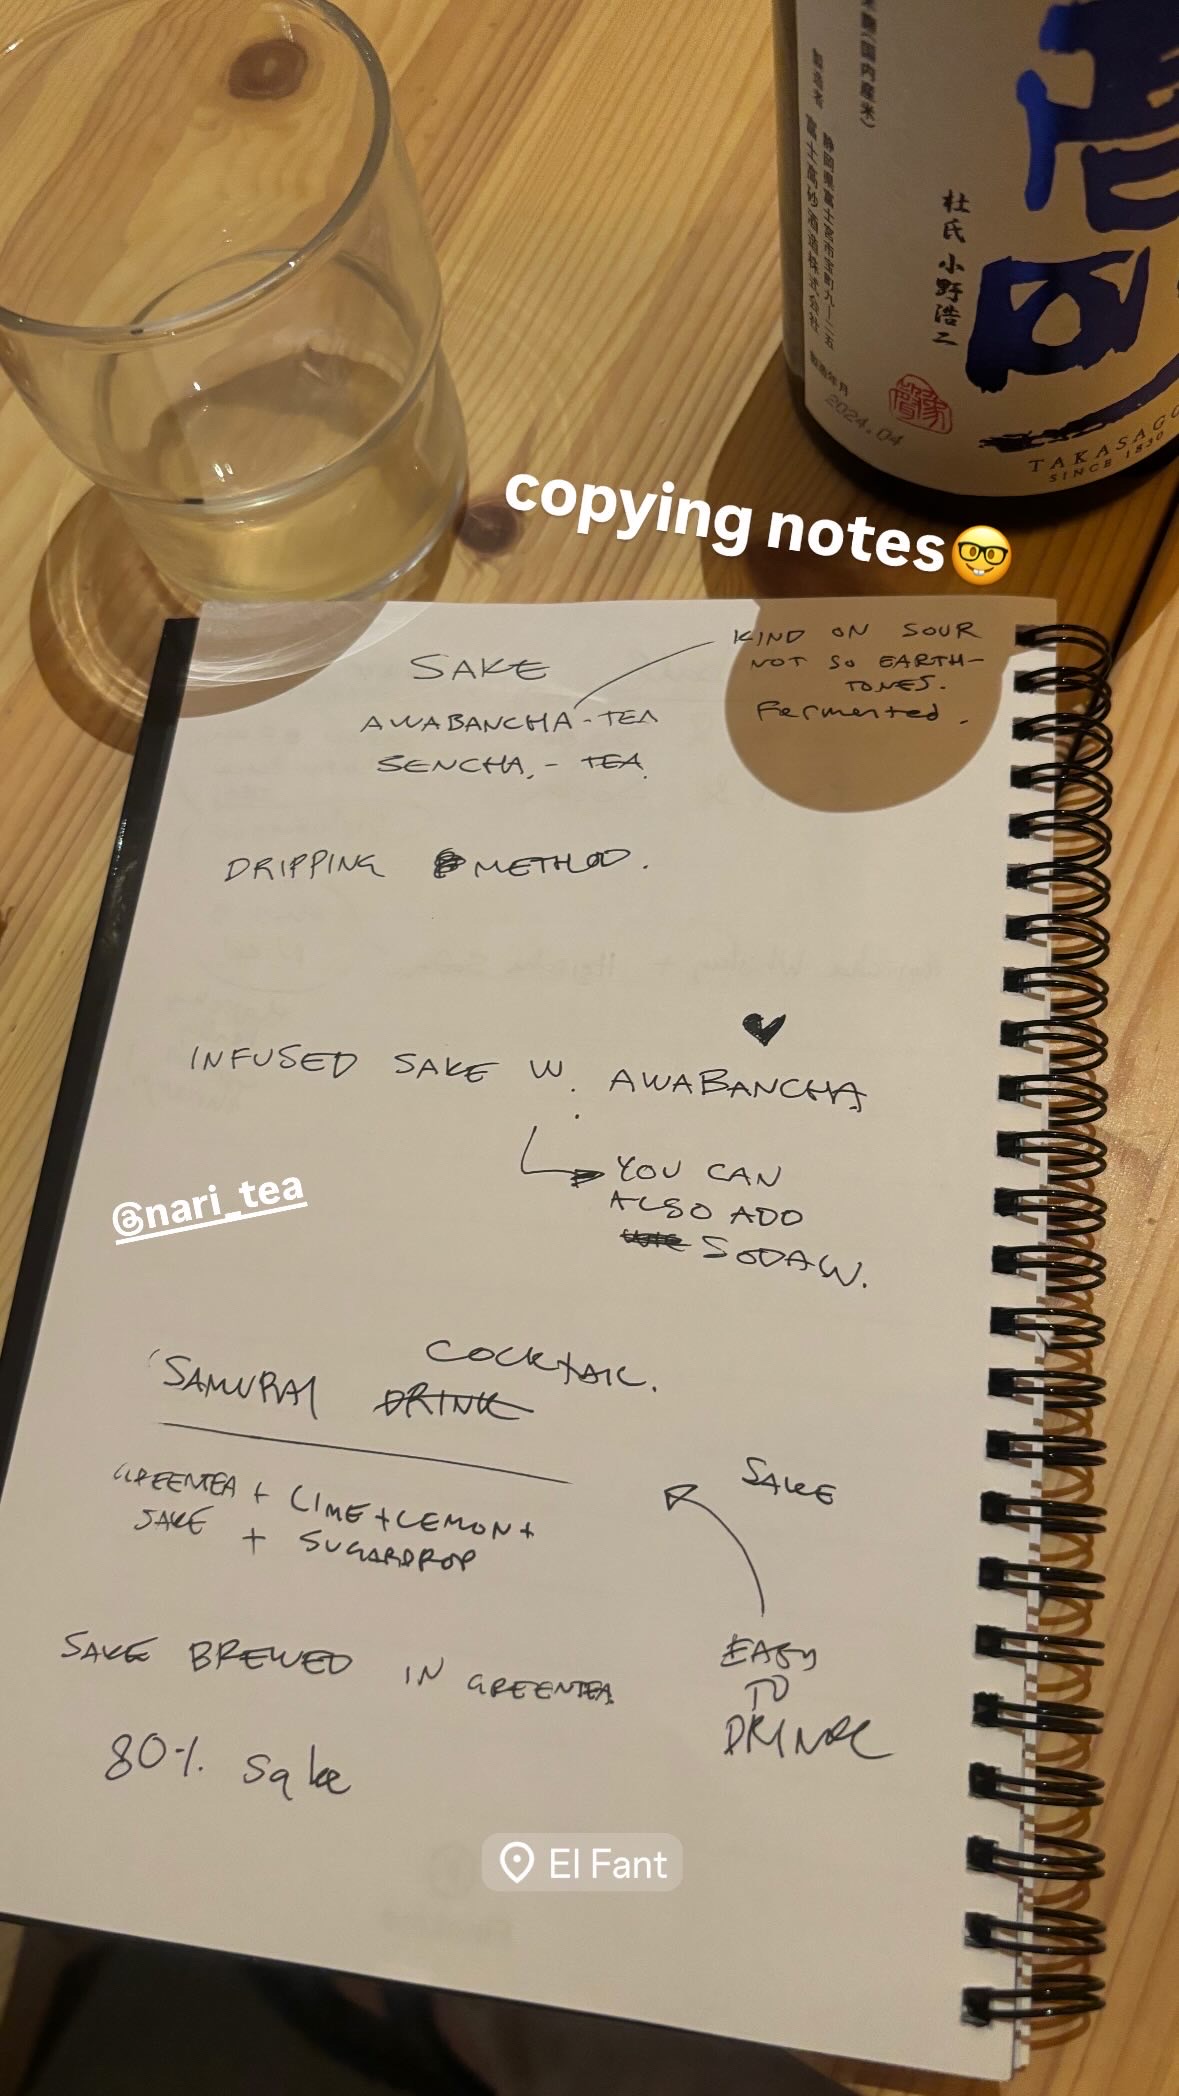 米麹(国内産米)
製造者
静岡県富士宮市宝町九ー二五
富士高砂酒造株式会社
杜氏 小野浩二
製造年月
2024.04
TAKASAGO
SINCE 1830
copying notes🤓
SAKE
KIND ON SOUR
NOT SO EARTH-
TONES.
Fermented.
AWABANCHA-TEA
SENCHA,- TEA
DRIPPING METHOD.
INFUSED SAKE W. AWABANCHA
YOU CAN
ALSO ADD
SODAW.
@nari_tea
COCKTAIL.
'SAMURAI DRINK
GREENTEA + LIME + LEMON +
SAKE + SUGARDROP
SAKE
EASY
TO
DRINK
SAKE BREWED IN GREENTEA
80% sake
El Fant